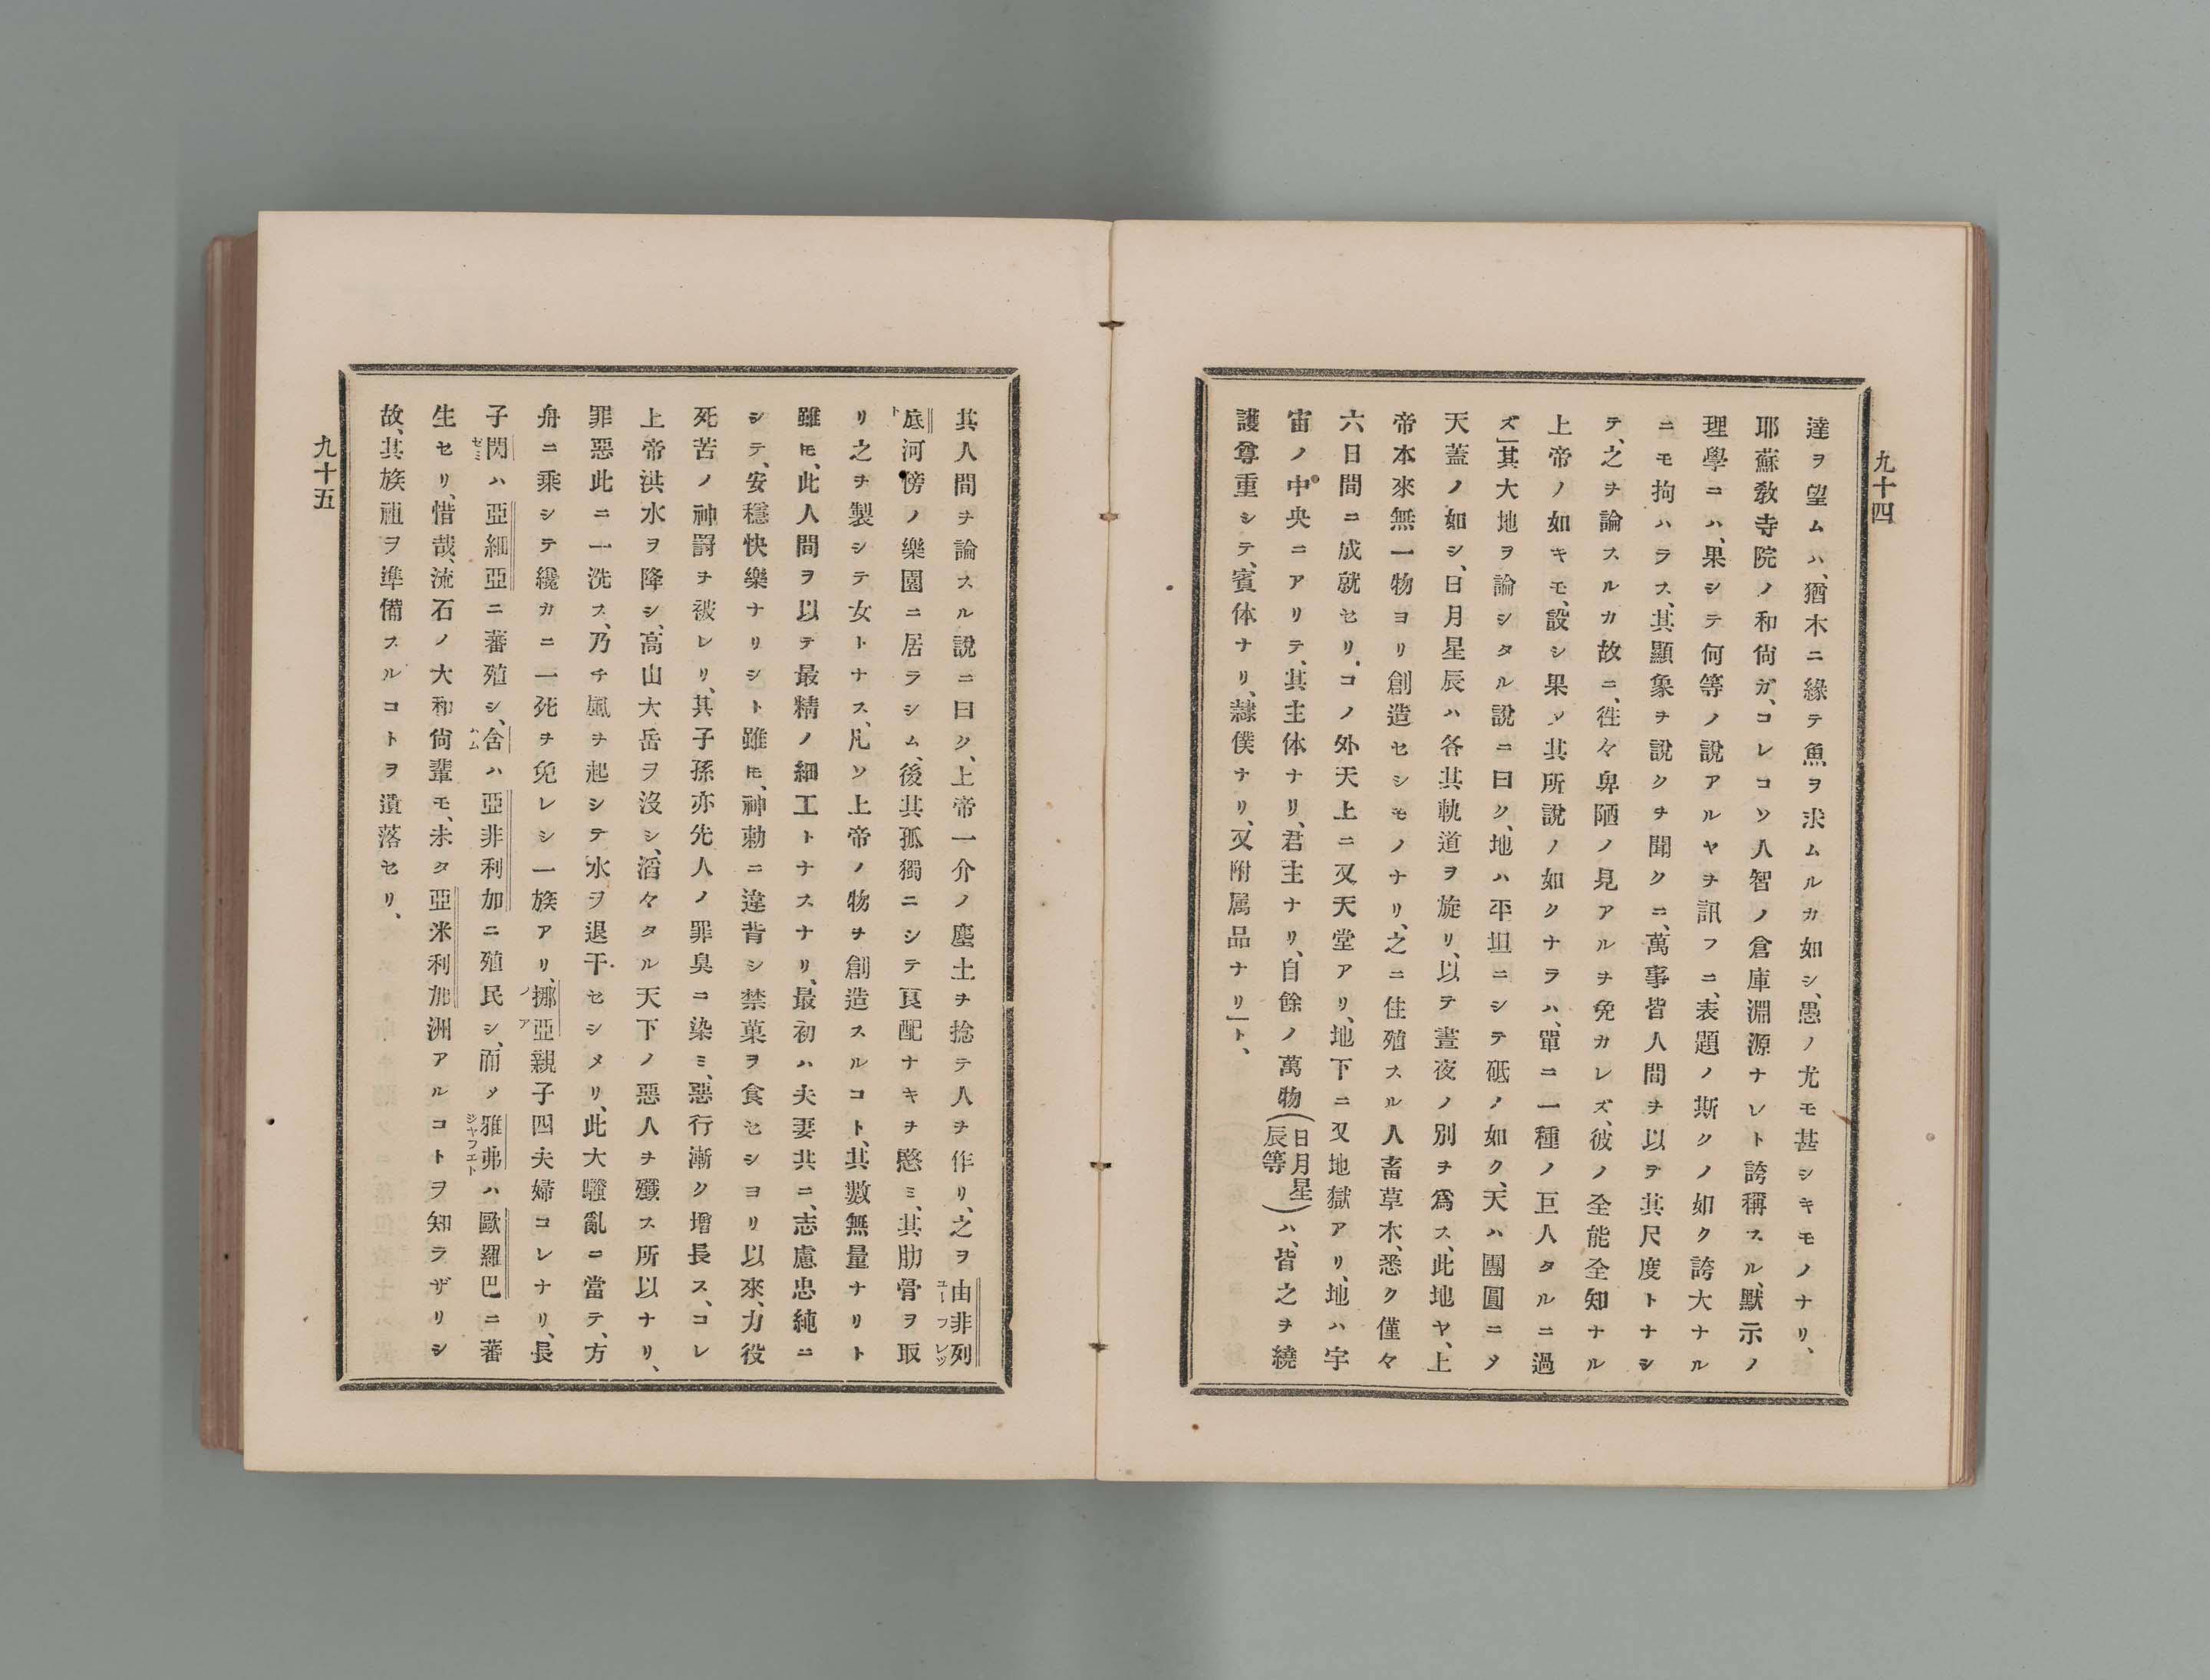 九十四
達ヲ望ムハ、猶木ニ緣テ魚ヲ求ムルカ如シ、愚ノ尤モ甚シキモノナリ、
耶蘇敎寺院ノ和尙ガ、コレコソ人智ノ倉庫淵源ナレト誇稱スル、默示ノ
理學ニハ、果シテ何等ノ說アルヤヲ訊フニ、表題ノ斯クノ如ク誇大ナル
ニモ拘ハラス、其顯象ヲ說クヲ聞クニ、萬事皆人間ヲ以テ其尺度トナシ
テ、之ヲ論スルカ故ニ、徃々卑陋ノ見アルヲ免カレズ、彼ノ全能全知ナル
上帝ノ如キモ、設シ果〆其所說ノ如クナラハ、單ニ一種ノ巨人タルニ過
ズ」其大地ヲ論シタル說ニ曰ク、地ハ平坦ニシテ砥ノ如ク、天ハ團圓ニ〆
天蓋ノ如シ、日月星辰ハ各其軌道ヲ旋リ、以テ晝夜ノ別ヲ爲ス、此地ヤ、上
帝本來無一物ヨリ創造セシモノナリ、之ニ住殖スル人畜草木、悉ク僅々
六日間ニ成就セリ、コノ外天上ニ又天堂アリ、地下ニ又地獄アリ、地ハ宇
宙ノ中央ニアリテ、其主体ナリ、君主ナリ、自餘ノ萬物(日月星辰等)ハ、皆之ヲ繞
護尊重シテ、賓体ナリ、隷僕ナリ、又附属品ナリ」ト、
其人間ヲ論スル說ニ曰ク、上帝一介ノ塵土ヲ捻テ人ヲ作リ、之ヲ由非列
ユーフレツ
底河傍ノ樂園ニ居ラシム、後其孤獨ニシテ良配ナキヲ愍ミ、其肋骨ヲ取
ト
リ之ヲ製シテ女トナス、凡ソ上帝ノ物ヲ創造スルコト、其數無量ナリト
雖𪜈、此人間ヲ以テ最精ノ細工トナスナリ、最初ハ夫妻共ニ、志慮忠純ニ
シテ、安穩快樂ナリシト雖𪜈、神勅ニ違背シ禁菓ヲ食セシヨリ以來、力役
死苦ノ神罸ヲ被レリ、其子孫亦先人ノ罪臭ニ染ミ、惡行漸ク增長ス、コレ
上帝洪水ヲ降シ、高山大岳ヲ沒シ、滔々タル天下ノ惡人ヲ殲ス所以ナリ、
罪惡此ニ一洗ス、乃チ風ヲ起シテ水ヲ退干セシメリ、此大騷亂ニ當テ、方
舟ニ乘シテ纔カニ一死ヲ免レシ一族アリ、挪亞親子四夫婦コレナリ、長
ノア
子閃ハ亞細亞ニ蕃殖シ、含ハ亞非利加ニ殖民シ、而〆雅弗ハ歐羅巴ニ蕃
セミ ハム シヤフエト
生セリ、惜哉、流石ノ大和尙輩モ、未タ亞米利加洲アルコトヲ知ラザリシ
故、其族祖ヲ準備スルコトヲ遺落セリ、
九十五